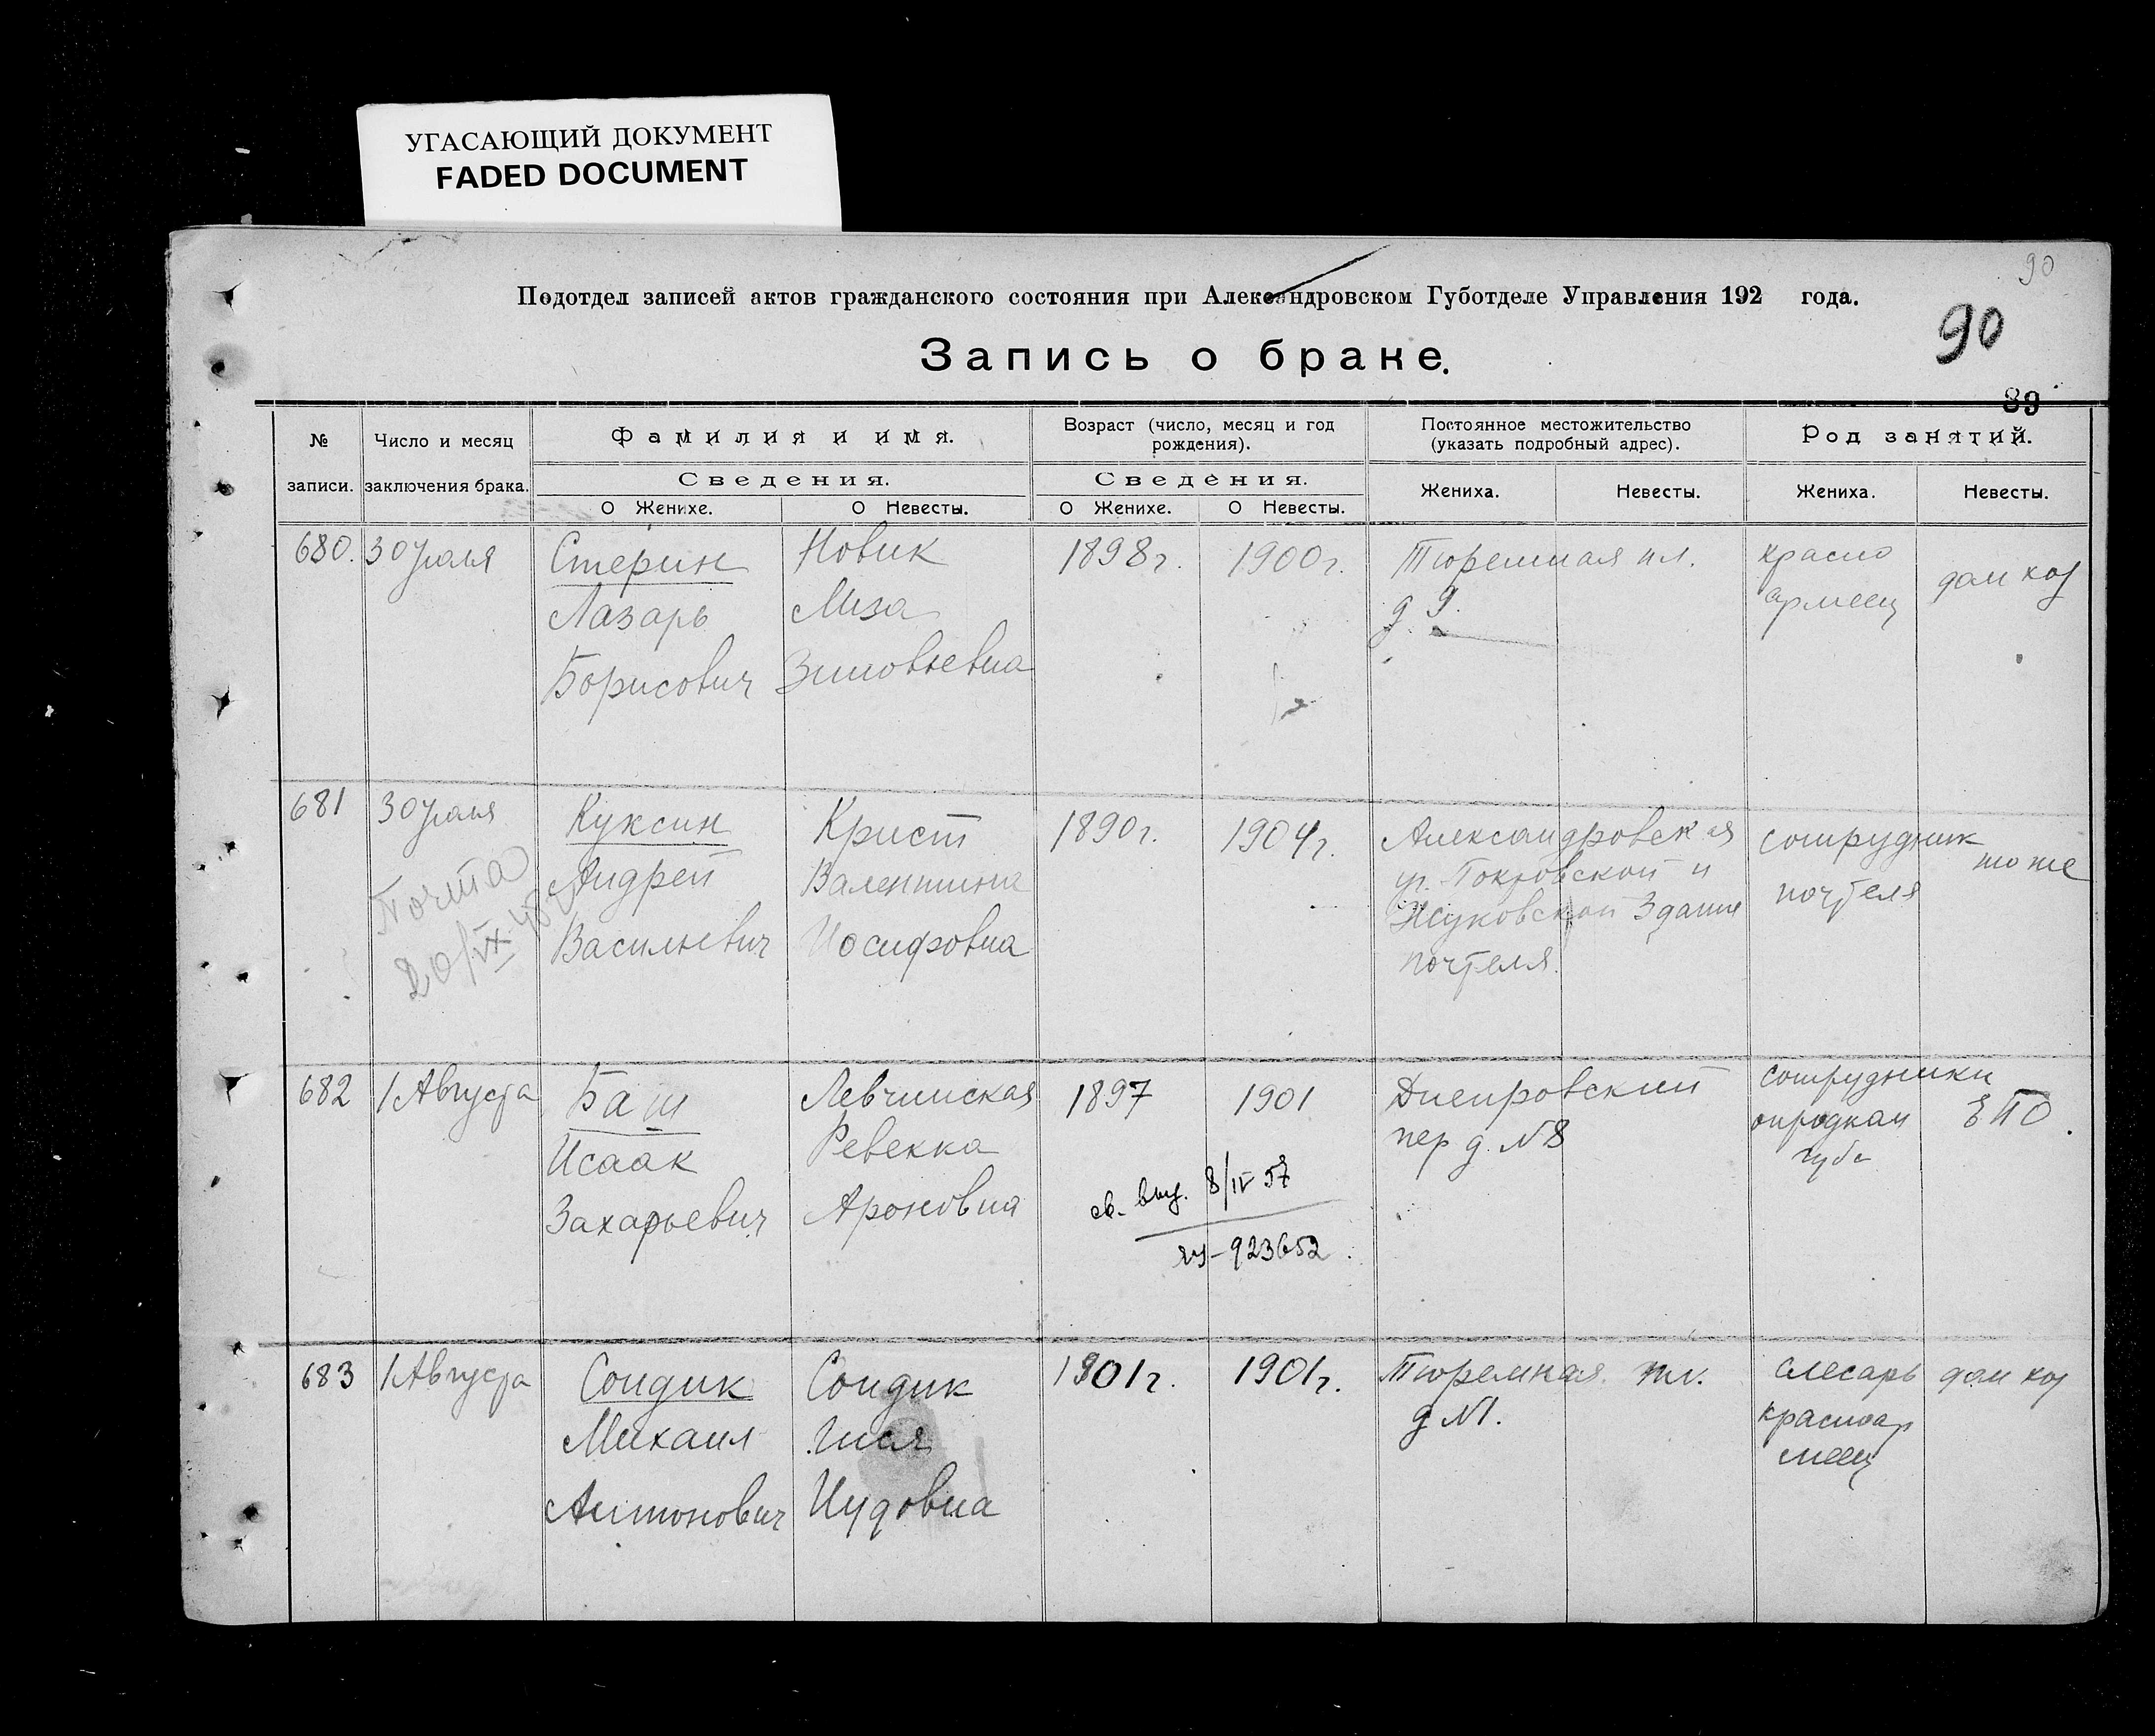 УГАСАЮЩИЙ ДОКУМЕНТ
FADED DOCUMENT
90
Подотдел записей актов гражданского состояния при Александровском Губотделе Управления 192 года.
90
Запись о браке.
89
№ записи.
Число и месяц заключения брака.
Фамилия и имя.
Сведения.
О Женихе.
О Невесты.
Возраст (число, месяц и год рождения).
Сведения.
О Женихе.
О Невесты.
Постоянное местожительство (указать подробный адрес).
Жениха.
Невесты.
Род занятий.
Жениха.
Невесты.
680. 30 Июля
Стерин
Лазарь
Борисович
Новик
Лиза
Зиновьевна
1898 г.
1900 г.
Тюремная пл.
д 9.
красно
армеец
дом хоз
681 30 Июля
Почта
20/IX
Куксин
Андрей
Васильевич
Крист
Валентина
Иосифовна
1890 г.
1904 г.
Александровская
уг. Покровской и
Жуковской Здание
почтеля.
сотрудник
почтеля
то же
682 1 Августа
Баш
Исаак
Захарьевич
Левчинская
Ревекка
Ароновна
1897
1901
св. выд. 8/IV 57
923652
Днепровский
пер д. № 8
сотрудники
опродком
губ
ЕПО.
683 1 Августа
Сондик
Михаил
Антонович
Сондик
Иудовна
1901 г.
1901 г.
Тюремная пл.
д № 1.
слесарь
красноар
меец
дом хоз